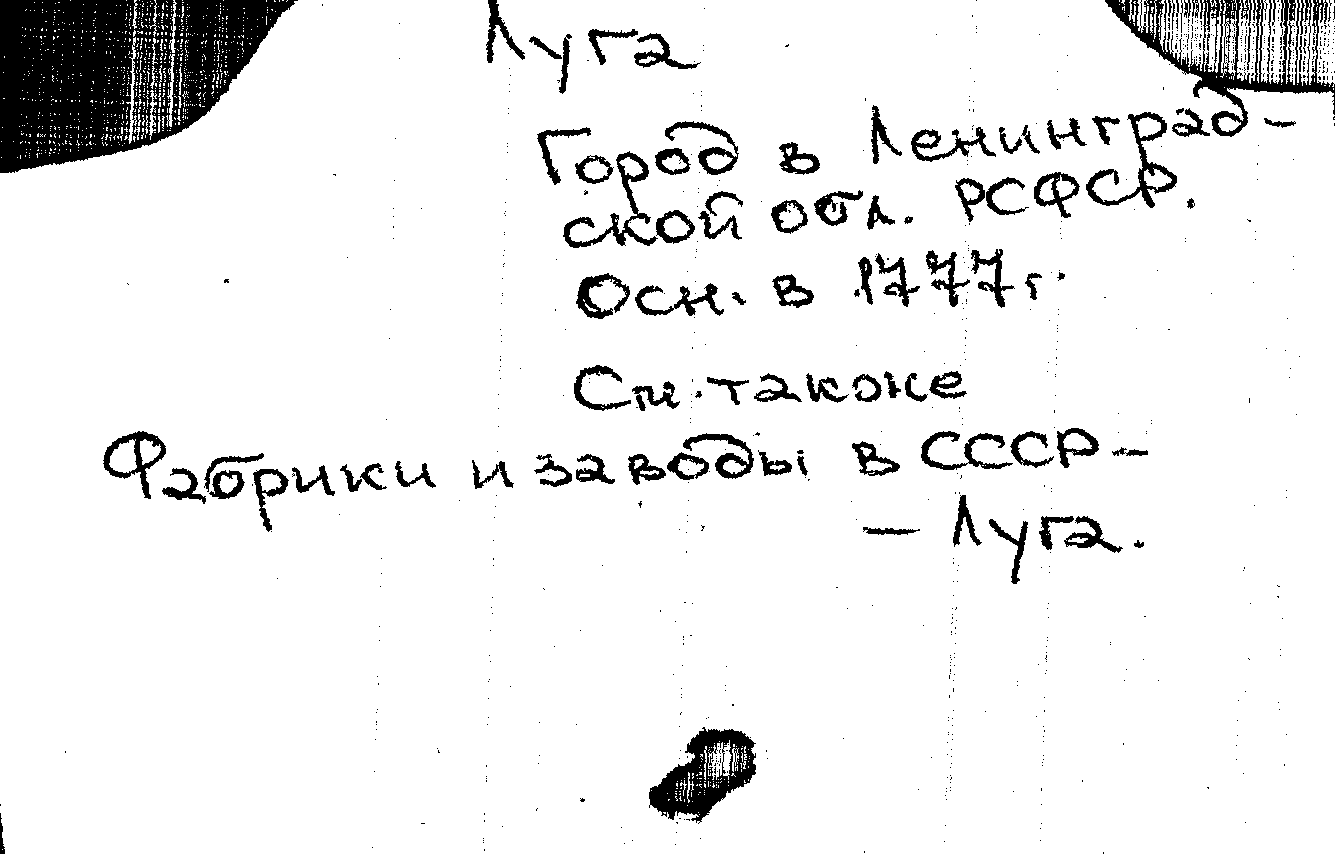 Луга
Город в Ленинград-
ской обл. РСФСР.
Осн. в 1777 г.
См. также
Фабрики и заводы в СССР -
- Луга.